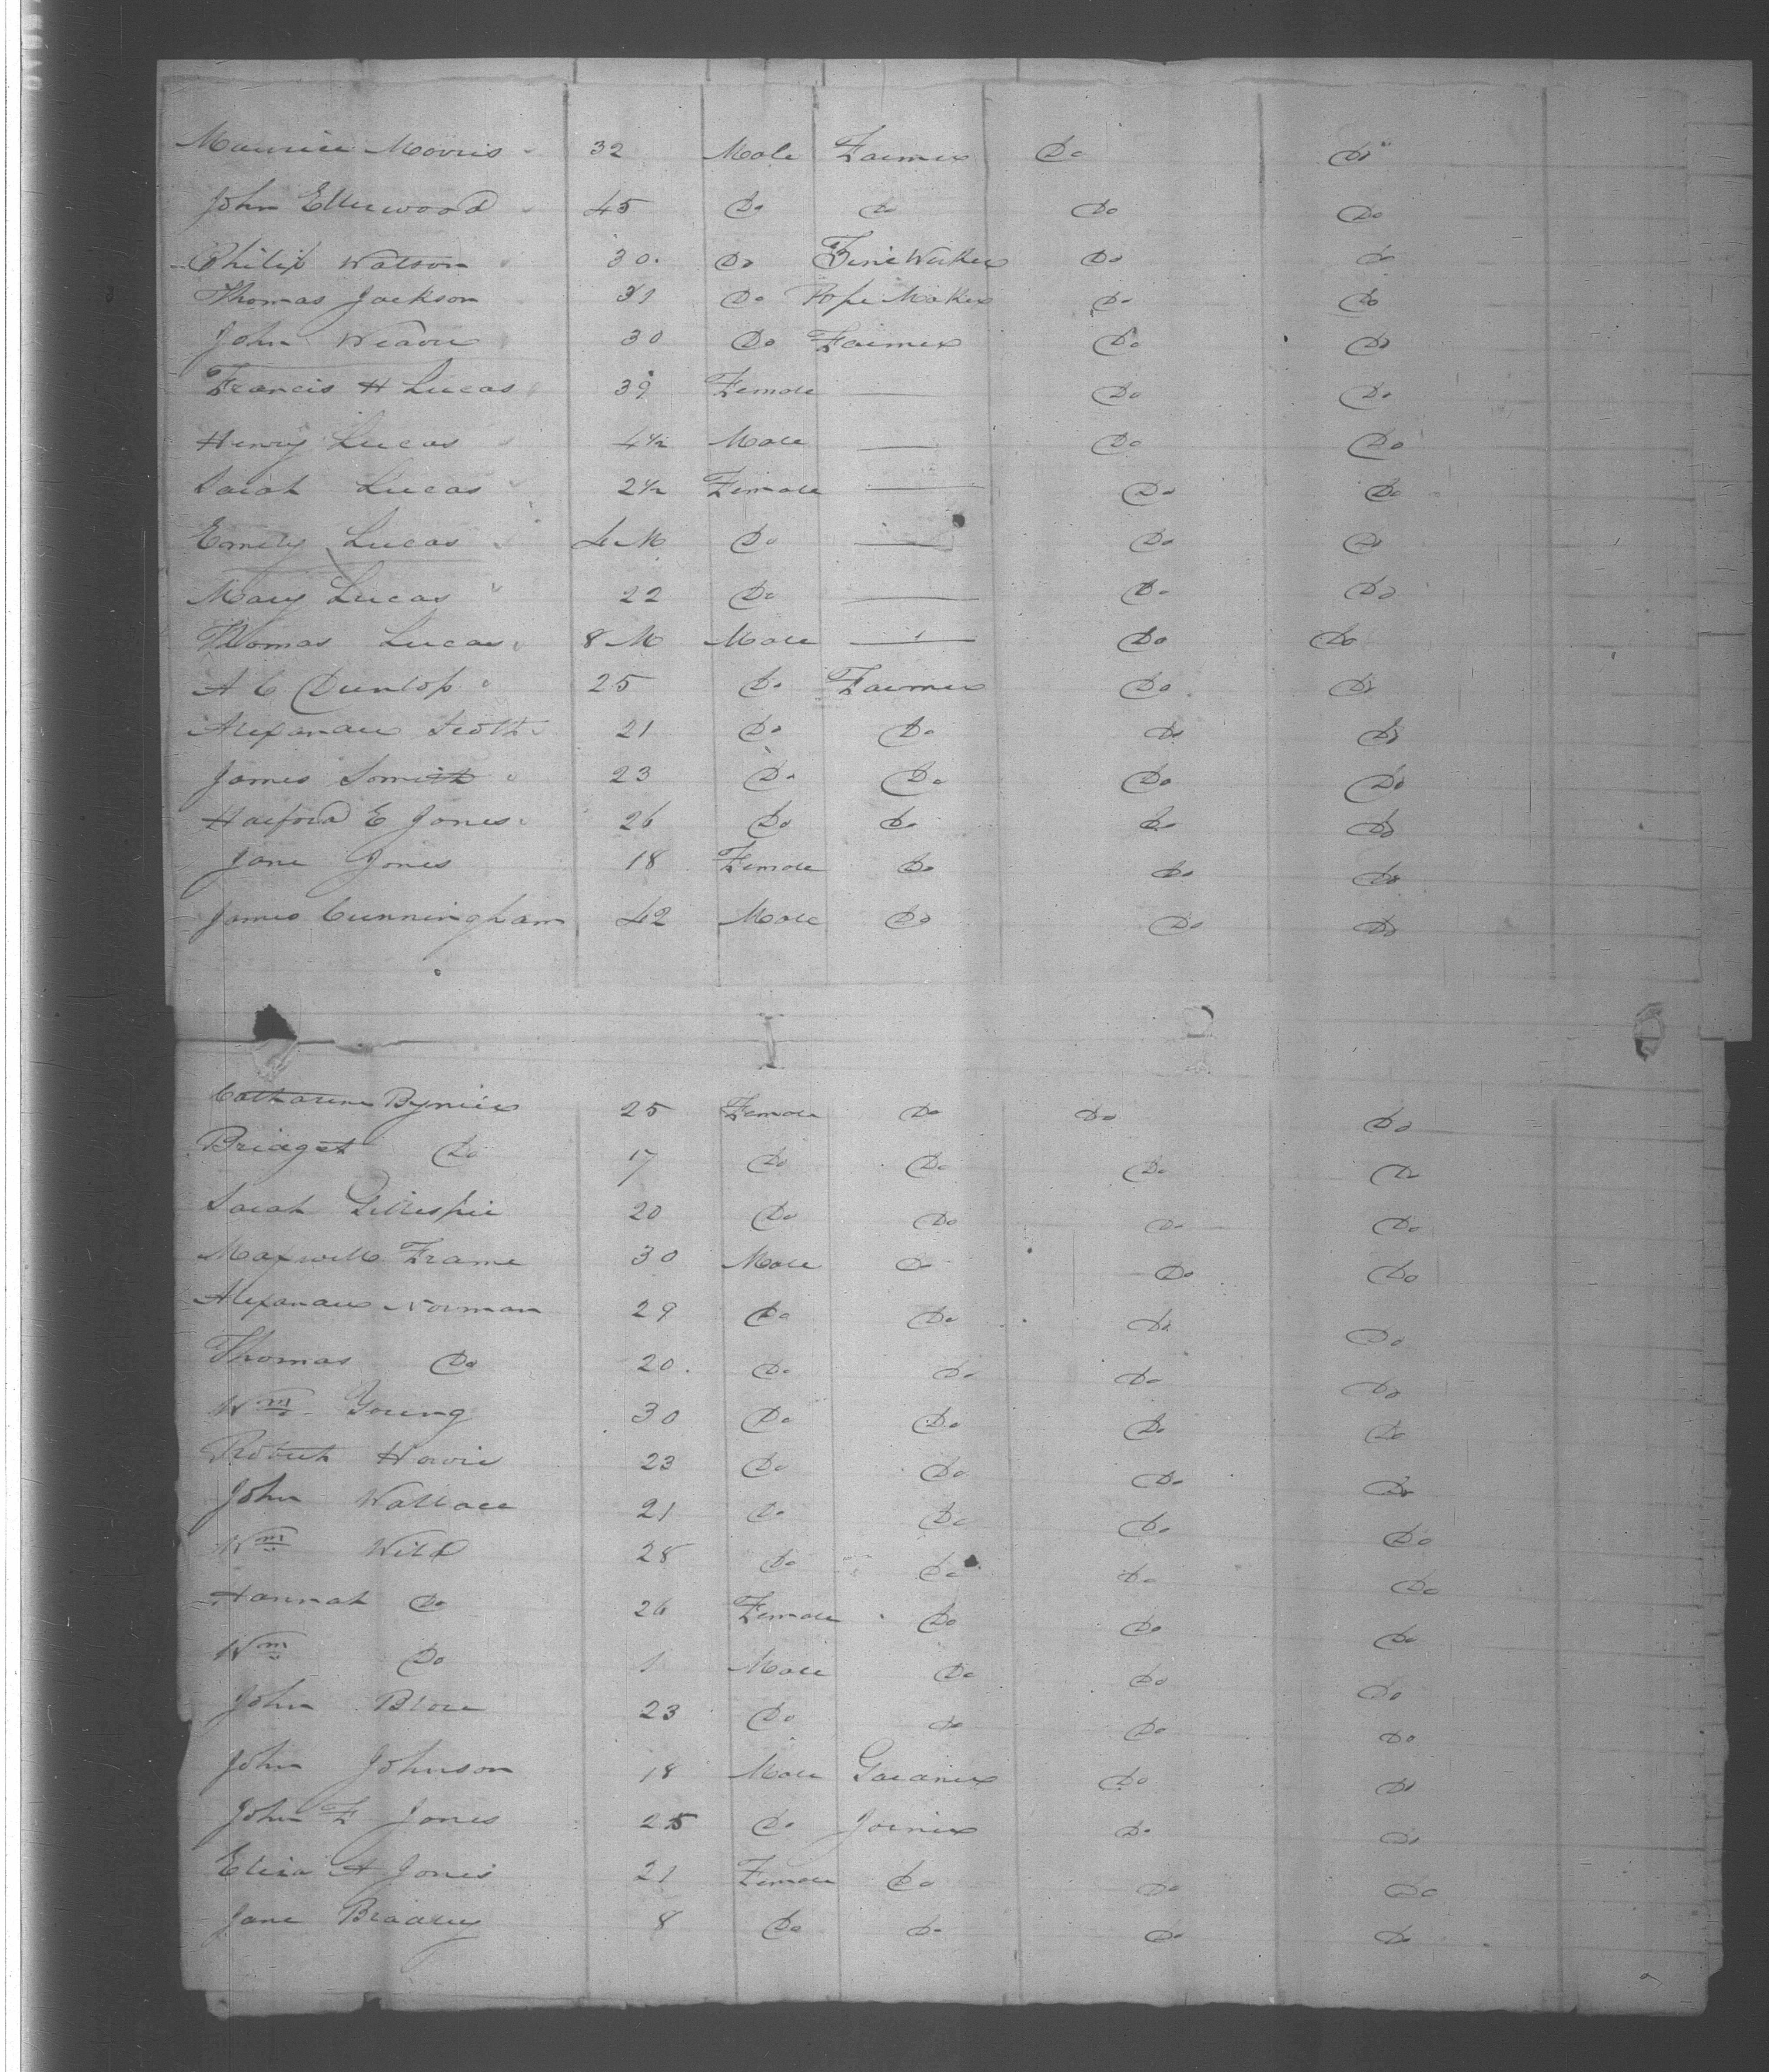 Maurice Morris 32 Male Farmer Do Do
John Ellerwood 45 Do Do Do Do
Philip Watson 30 Do Do Do
Thomas Jackson 31 Do Rope Maker Do Do
John Weaver 30 Do Farmer Do Do
Francis H Lucas 39 Female — Do Do
Henry Lucas 4½ Male — Do Do
Sarah Lucas 2½ Female — Do Do
Emily Lucas 4 M Do — Do Do
Mary Lucas 22 Do — Do Do
Thomas Lucas 8 M Male — Do Do
A C Dunlop 25 Do Farmer Do Do
Alexander Scott 21 Do Do Do Do
James Smith 23 Do Do Do Do
Harford E Jones 26 Do Do Do Do
Jane Jones 18 Female Do Do Do
James Cunningham 42 Male Do Do Do
Catharine 25 Female Do Do Do
Bridget Do 17 Do Do Do Do
Sarah Gillespie 20 Do Do Do Do
Maxwell Frame 30 Male Do Do Do
Alexander Norman 29 Do Do Do Do
Thomas Do 20 Do Do Do Do
Wm Young 30 Do Do Do Do
Robert Howie 23 Do Do Do Do
John Wallace 21 Do Do Do Do
Wm Wild 28 Do Do Do Do
Hannah Do 26 Female Do Do Do
Wm Do 1 Male Do Do Do
John Blore 23 Do Do Do Do
John Johnson 18 Male Gardner Do Do
John F Jones 25 Do Joiner Do Do
Eliza A Jones 21 Female Do Do Do
Jane Bradley 8 Do Do Do Do